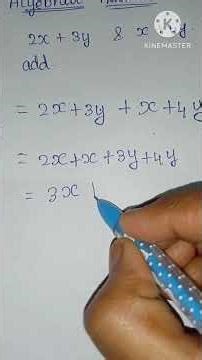 Algebraic
2x + 3y & x
add
= 2x+3y +x+4y
= 2x+x+3y+4y
= 3x
KINEMASTER